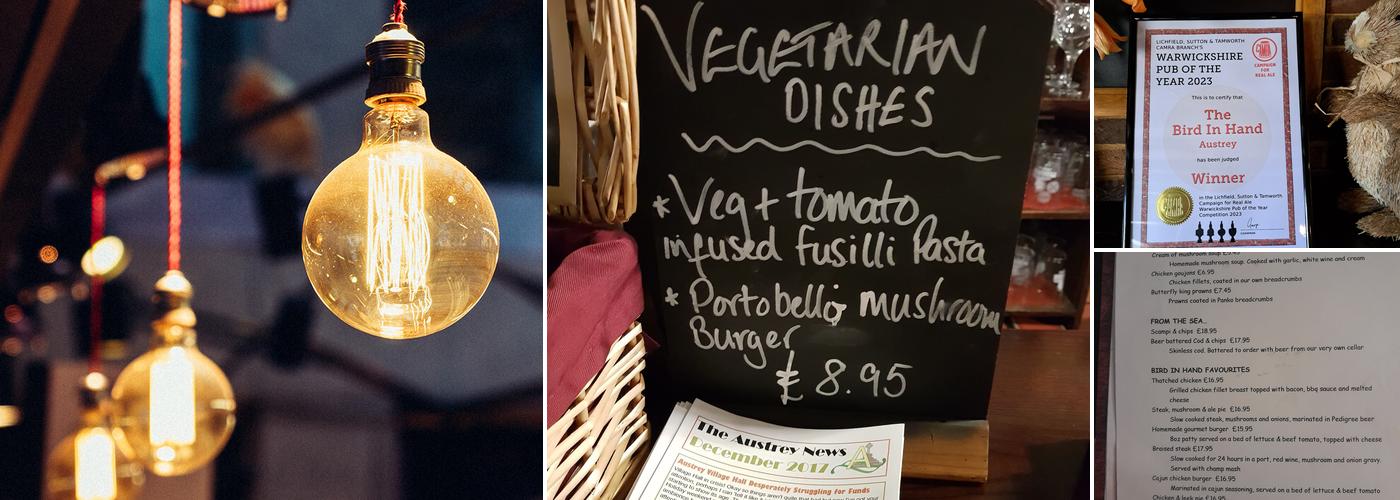 VEGETARIAN
DISHES
* Veg + tomato
infused fusilli Pasta
* Portobello mushroom
Burger
£8.95
The Austrey News
December 2017
Austrey Village Hall Desperately Struggling for Funds
LICHFIELD, SUTTON & TAMWORTH
CAMRA BRANCH'S
WARWICKSHIRE
PUB OF THE
YEAR 2023
CAMRA
CAMPAIGN
FOR
REAL ALE
This is to certify that
The
Bird In Hand
Austrey
has been judged
Winner
in the Lichfield, Sutton & Tamworth
Campaign for Real Ale
Warwickshire Pub of the Year
Competition 2023
Cream of mushroom soup
Homemade mushroom soup. Cooked with garlic, white wine and cream
Chicken goujons £6.95
Chicken fillets, coated in our own breadcrumbs
Butterfly king prawns £7.45
Prawns coated in Panko breadcrumbs
FROM THE SEA...
Scampi & chips £18.95
Beer battered Cod & chips £17.95
Skinless cod. Battered to order with beer from our very own cellar
BIRD IN HAND FAVOURITES
Thatched chicken £16.95
Grilled chicken fillet breast topped with bacon, bbq sauce and melted
cheese
Steak, mushroom & ale pie £16.95
Slow cooked steak, mushrooms and onions, marinated in Pedigree beer
Homemade gourmet burger £15.95
8oz patty served on a bed of lettuce & beef tomato, topped with cheese
Braised steak £17.95
Slow cooked for 24 hours in a port, red wine, mushroom and onion gravy.
Served with champ mash
Cajun chicken burger £16.95
Marinated in cajun seasoning, served on a bed of lettuce & beef tomato